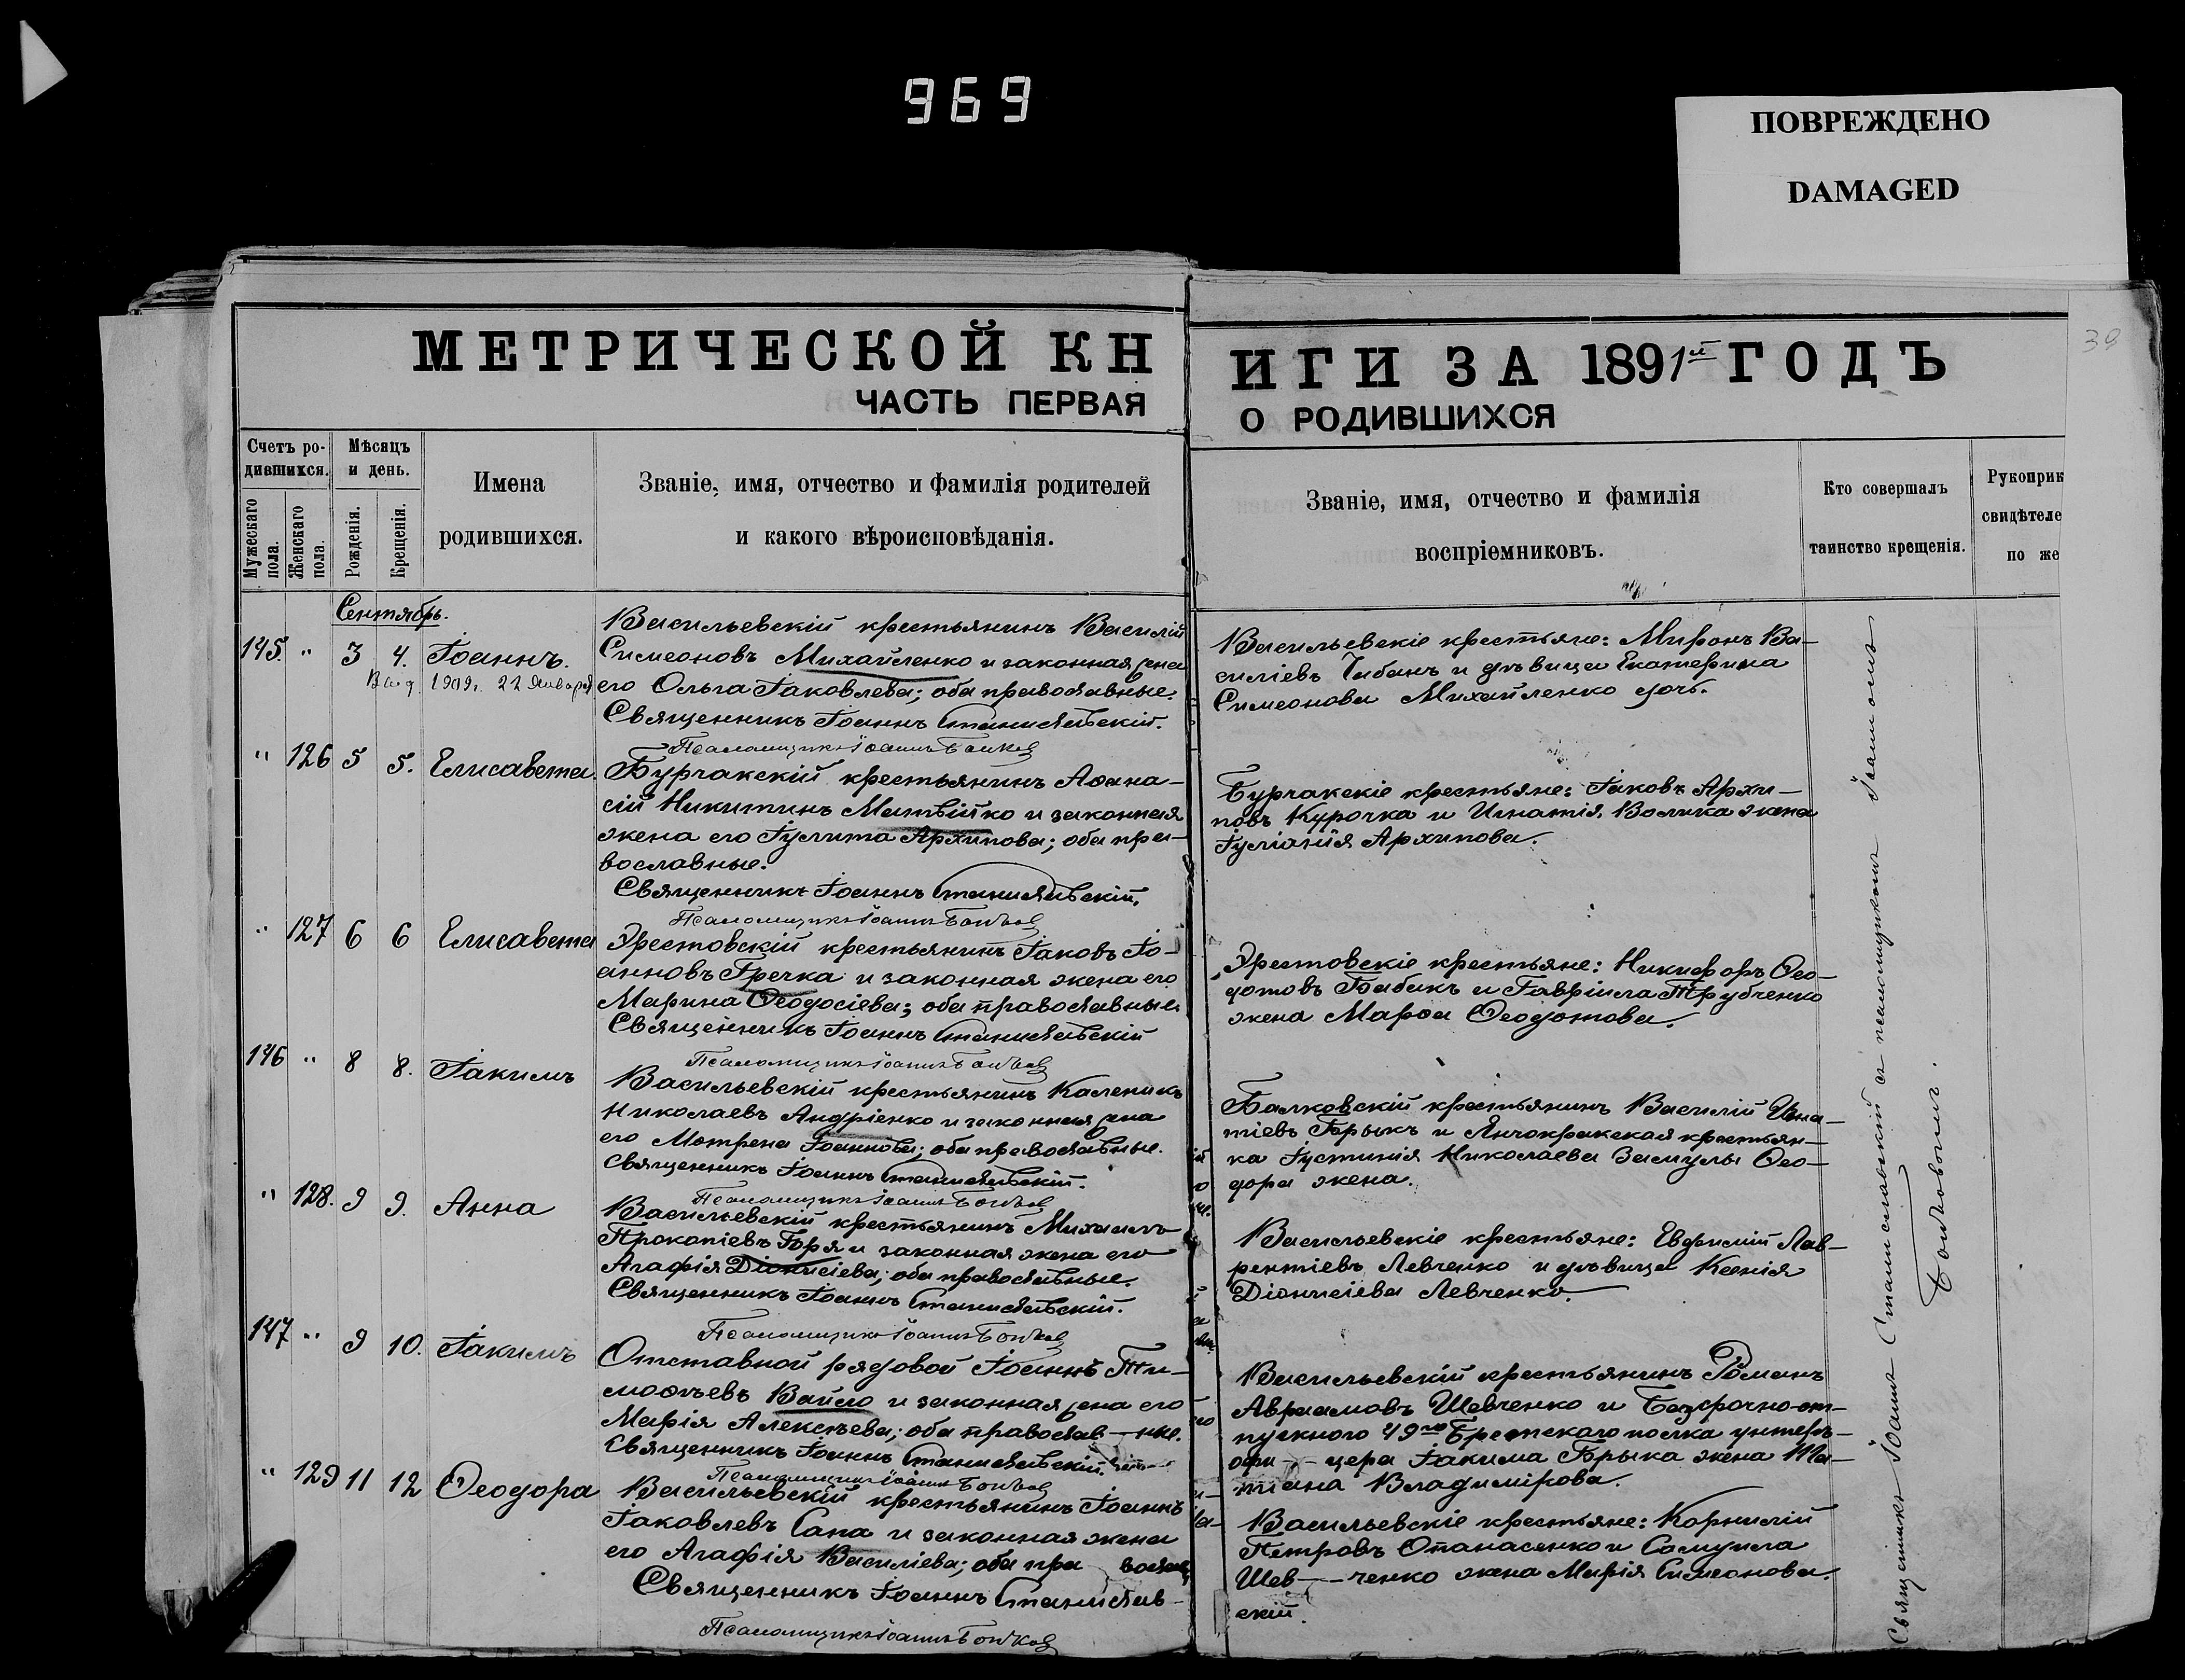 969
ПОВРЕЖДЕНО
DAMAGED
39
МЕТРИЧЕСКОЙ КН
ЧАСТЬ ПЕРВАЯ
ИГИ ЗА 1891й ГОДЪ
О РОДИВШИХСЯ
Счетъ ро-
дившихся.
Мужескаго пола.
Женскаго пола.
Мѣсяцъ
и день.
Рожденія.
Крещенія.
Имена
родившихся.
Званіе, имя, отчество и фамилія родителей
и какого вѣроисповѣданія.
Званіе, имя, отчество и фамилія
воспріемниковъ.
Кто совершалъ
таинство крещенія.
Рукоприк
свидѣтеле
по же
Сентябрь.
145. " 3 4. Іоаннъ.
1909. 22 Января
Васильевскій крестьянинъ Василій
Симеоновъ Михайленко и законная жена
его Ольга Іаковлева; оба православные.
Священникъ Іоаннъ Станиславскій.
Псаломщикъ Іоаннъ
Васильевскіе крестьяне: Миронъ Ва-
силіевъ Чабанъ и дѣвица Екатерина
Симеонова Михайленко дочь.
" 126 5 5. Елисавета.
Бурчакскій крестьянинъ Аѳана-
сій Никитинъ Матвійко и законная
жена его Іулита Архипова; оба пра-
вославные.
Священникъ Іоаннъ Станиславскій.
Псаломщикъ Іоаннъ
Бурчакскіе крестьяне: Іаковъ Архи-
повъ Курочка и Игнатія Волика жена
Іуліанія Архипова.
" 127 6 6 Елисавета
Эрестовскій крестьянинъ Іаковъ Іо-
анновъ Гречка и законная жена его
Марина Ѳеодосіева; оба православные
Священникъ Іоаннъ Станиславскій
Псаломщикъ Іоаннъ
Эрестовскіе крестьяне: Никифоръ Ѳео-
дотовъ Бабакъ и Гавріила Трубченко
жена Марѳа Ѳеодотова.
146 " 8 8. Іакимъ
Васильевскій крестьянинъ Каленикъ
Николаевъ Андріенко и законная жена
его Мотрена Іоаннова; оба православные.
Священникъ Іоаннъ Станиславскій.
Псаломщикъ Іоаннъ
Балковскій крестьянинъ Василій Игна-
тіевъ Брыкъ и Янчокракская крестьян-
ка Іустинія Николаева Замулы Ѳео-
дора жена.
" 128. 9 9. Анна
Васильевскій крестьянинъ Михаилъ
Прокопіевъ Горя и законная жена его
Агафія Діонисіева; оба православные.
Священникъ Іоаннъ Станиславскій.
Псаломщикъ Іоаннъ
Васильевскіе крестьяне: Евфимій Лав-
рентіевъ Левченко и дѣвица Ксенія
Діонисіева Левченко.
147 " 9 10. Іакимъ
Отставной рядовой Іоаннъ Ти-
моѳѣевъ Вайло и законная жена его
Марія Алексѣева; оба православ-ные.
Священникъ Іоаннъ Станиславскій.
Псаломщикъ Іоаннъ
Васильевскій крестьянинъ Романъ
Авраамовъ Шевченко и Безсрочно-от-
пускного 49го Брестскаго полка унтеръ-
офи - цера Іакима Брыка жена Та-
тіана Владимірова.
" 129 11 12 Ѳеодора
Васильевскій крестьянинъ Іоаннъ
Іаковлевъ Сапа и законная жена
его Агафія Василіева; оба пра вослав
Священникъ Іоаннъ Станислав-
скій.
Псаломщикъ Іоаннъ
Васильевскіе крестьяне: Корнилій
Петровъ Опанасенко и Самуила
Шев-ченко жена Марія Симеонова.
Священникъ Іоаннъ Станиславскій съ псаломщикомъ Іоанномъ